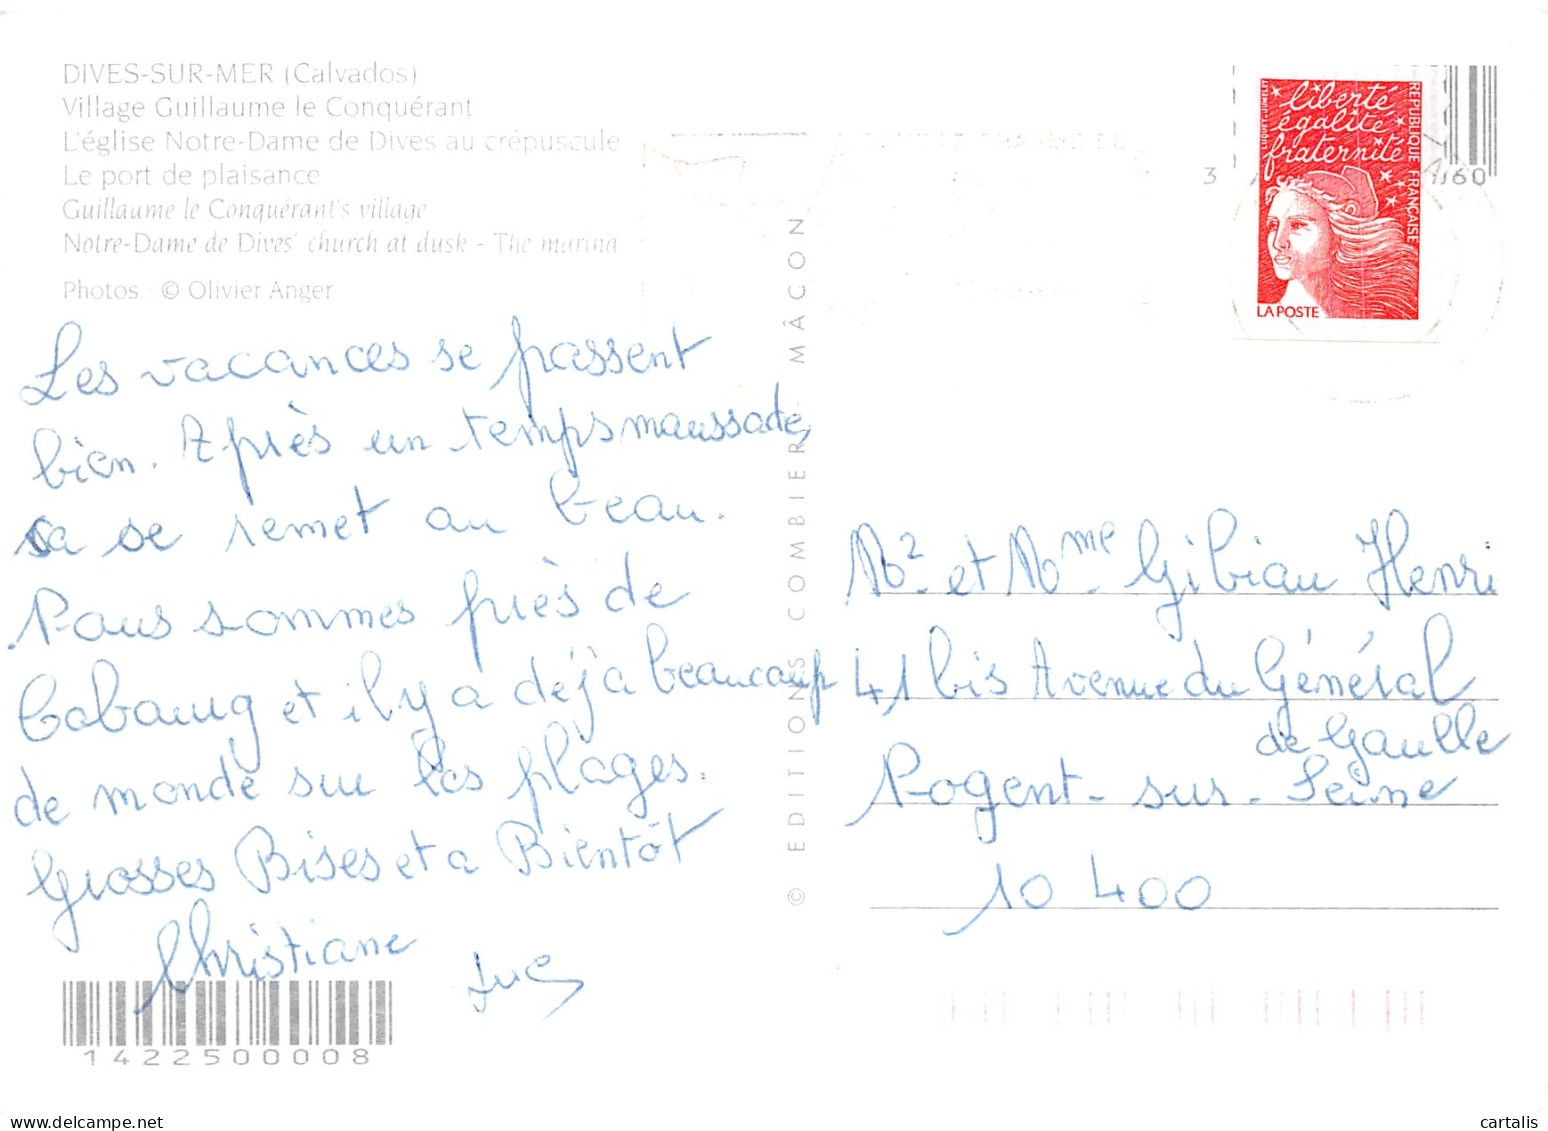 DIVES-SUR-MER (Calvados)
Village Guillaume le Conquérant
L'église Notre-Dame de Dives au crépuscule
Le port de plaisance
Guillaume le Conquérant's village
Notre-Dame de Dives' church at dusk - The marina
Photos : © Olivier Anger
Les vacances se passent
bien. Après un temps maussade,
sa se remet au beau.
Nous sommes près de
Cabourg et il y a déjà beaucoup
de monde sur les plages.
Grosses Bises et a Bientôt
Christiane
Luc
1422500008
© EDITIONS COMBIER MÂCON
3
160
liberté
égalité
fraternité
REPUBLIQUE FRANÇAISE
LUQUET-JUMELET
LA POSTE
Mr et Mme Gibiau Henri
41 bis Avenue du Général
de Gaulle
Nogent-sur-Seine
10 400
cartalis